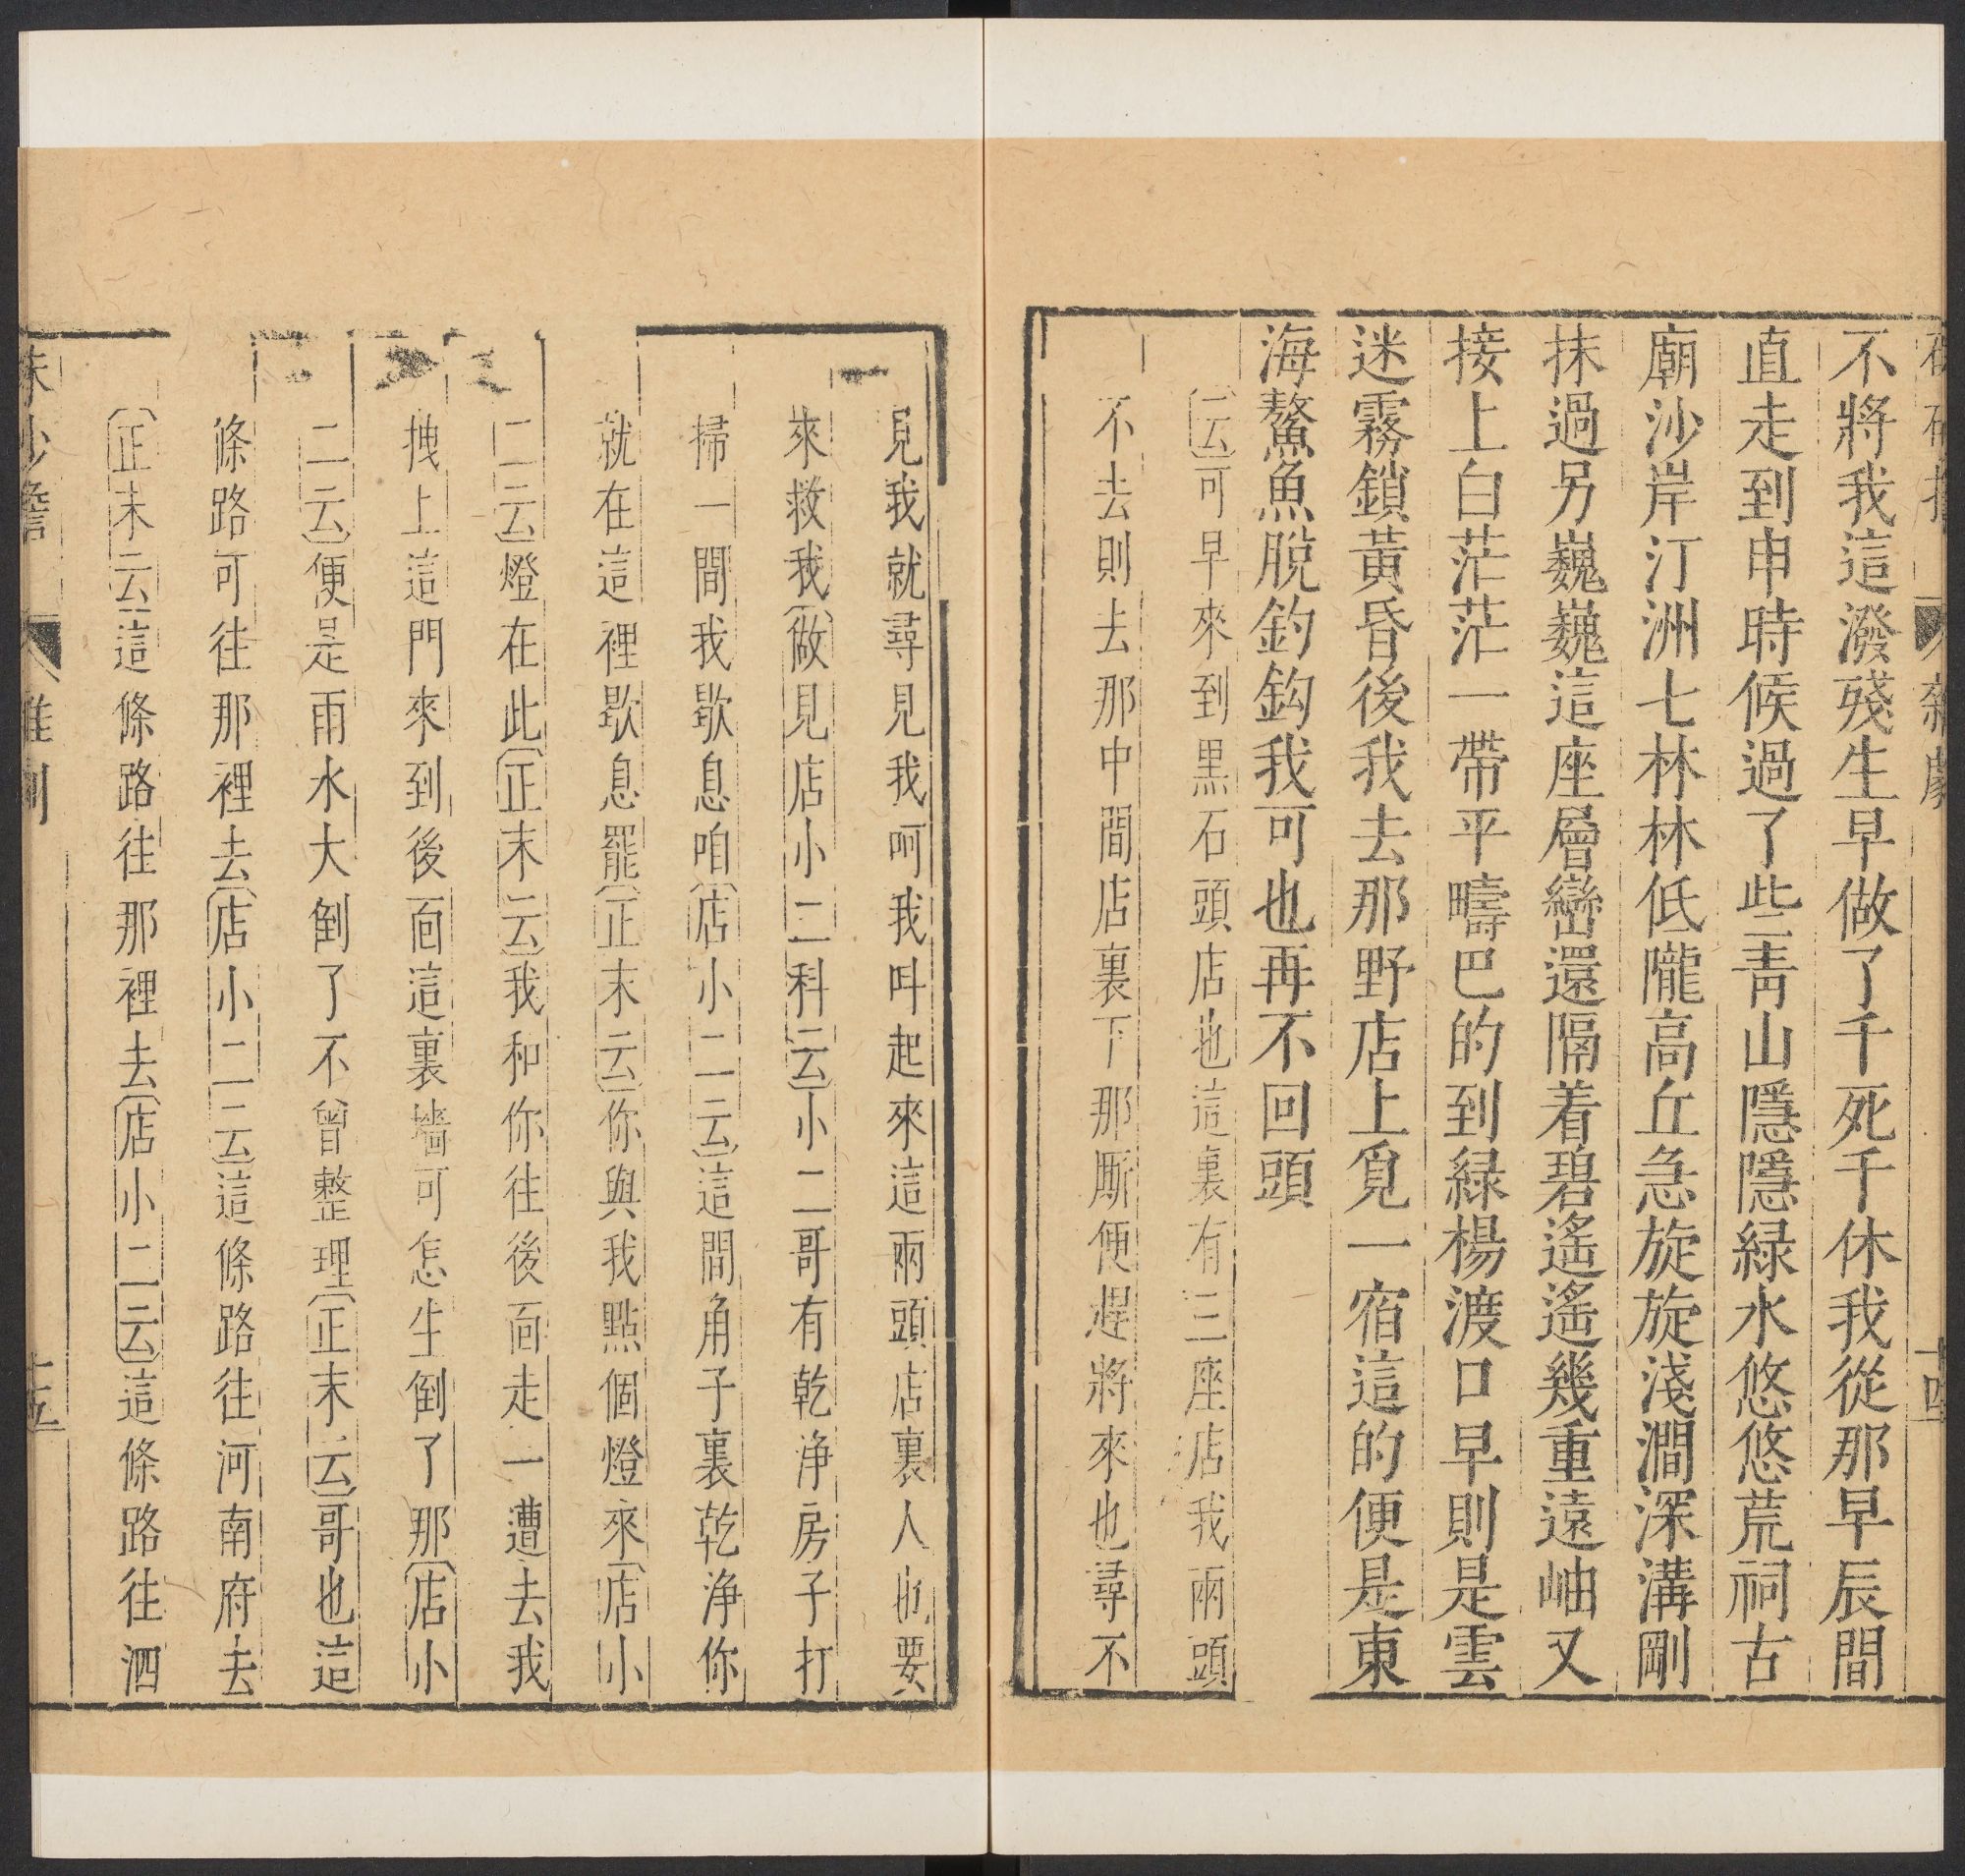 雜劇
十四
不將我這潑殘生早做了千死千休我從那早辰間
直走到申時候過了些青山隱隱緑水悠悠荒祠古
廟沙岸汀洲七林林低隴高丘急旋旋淺澗深溝剛
抹過另巍巍這座層巒還隔着碧遙遙幾重遠岫又
接上白茫茫一帶平疇巴的到緑楊渡口早則是雲
迷霧鎖黃昏後我去那野店上覓一宿這的便是東
海鰲魚脫釣鈎我可也再不回頭
云可早來到黒石頭店也這裏有三座店我兩頭
不去則去那中間店裏下那厮便趕將來也尋不
見我就尋見我呵我呌起來這兩頭店裏人也要
來救我做見店小二科云小二哥有乾淨房子打
掃一間我歇息咱店小二云這間角子裏乾淨你
就在這裡歇息罷正末云你與我點個燈來店小
二云燈在此正末云我和你往後面走一遭去我
拽上這門來到後面這裏墻可怎生倒了那店小
二云便是雨水大倒了不曾整理正末云哥也這
條路可往那裡去店小二云這條路往河南府去
正末云這條路往那裡去店小二云這條路往泗
朱砂擔
雜劇
十五